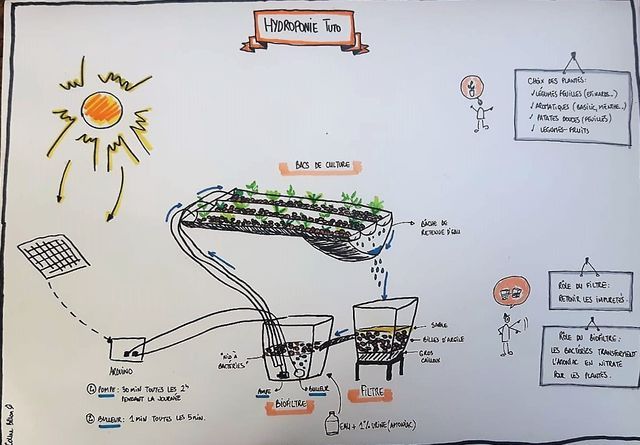 HYDROPONIE TUTO
CHOIX DES PLANTES:
✓ LÉGUMES FEUILLES (EPINARDS...)
✓ AROMATIQUES (BASILIC, MENTHE...)
✓ PATATES DOUCES (FEUILLES)
✓ LEGUMES-FRUITS
BACS DE CULTURE
BÂCHE DE
RETENUE D'EAU
RÔLE DU FILTRE:
RETENIR LES IMPURETÉS.
RÔLE DU BIOFILTRE:
LES BACTÉRIES TRANSFORMENT
L'AMONIAC EN NITRATE
POUR LES PLANTES.
SABLE
BILLES D'ARGILE
GROS
CAILLOUX
"NID À
BACTÉRIES"
ARDUINO
POMPE
BULLEUR
BIOFILTRE
FILTRE
1. POMPE: 30 MIN TOUTES LES 2H
PENDANT LA JOURNÉE
2. BULLEUR: 1 MIN TOUTES LES 5 MIN.
EAU + 1% URINE (AMONIAC)